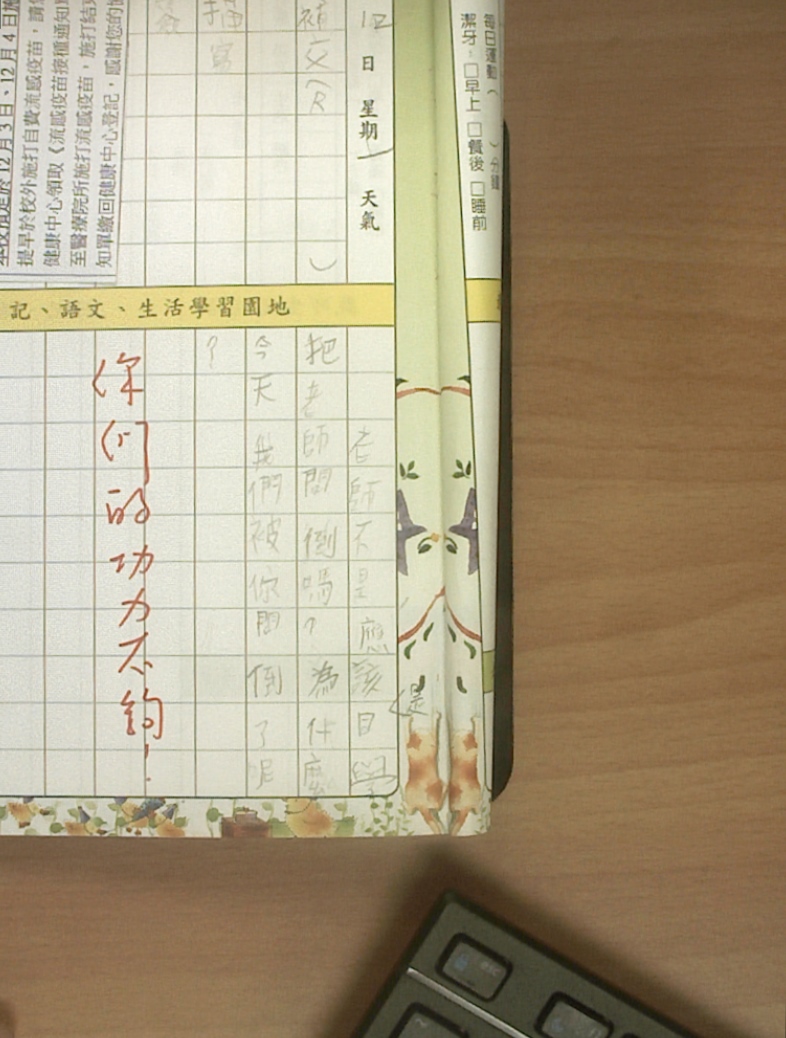 每日運動（　）分鐘
潔牙：□早上 □餐後 □睡前
12 日 星期一 天氣
補交
描寫
記、語文、生活學習園地
老師不是應該目學
是
把老師問倒嗎？為什麼
今天我們被你問倒了呢
？
你們的功力不夠！
12月3日、12月4日施
提早於校外施打自費流感疫苗，請
健康中心領取《流感疫苗接種通知
至醫療院所施打流感疫苗，施打結
知單繳回健康中心登記，感謝您的
esc